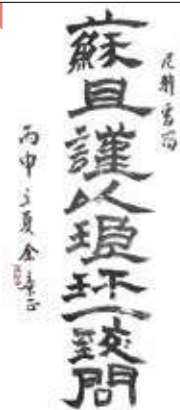 尼雅書簡
蘇且謹以琅玕一致問
丙申之夏 金